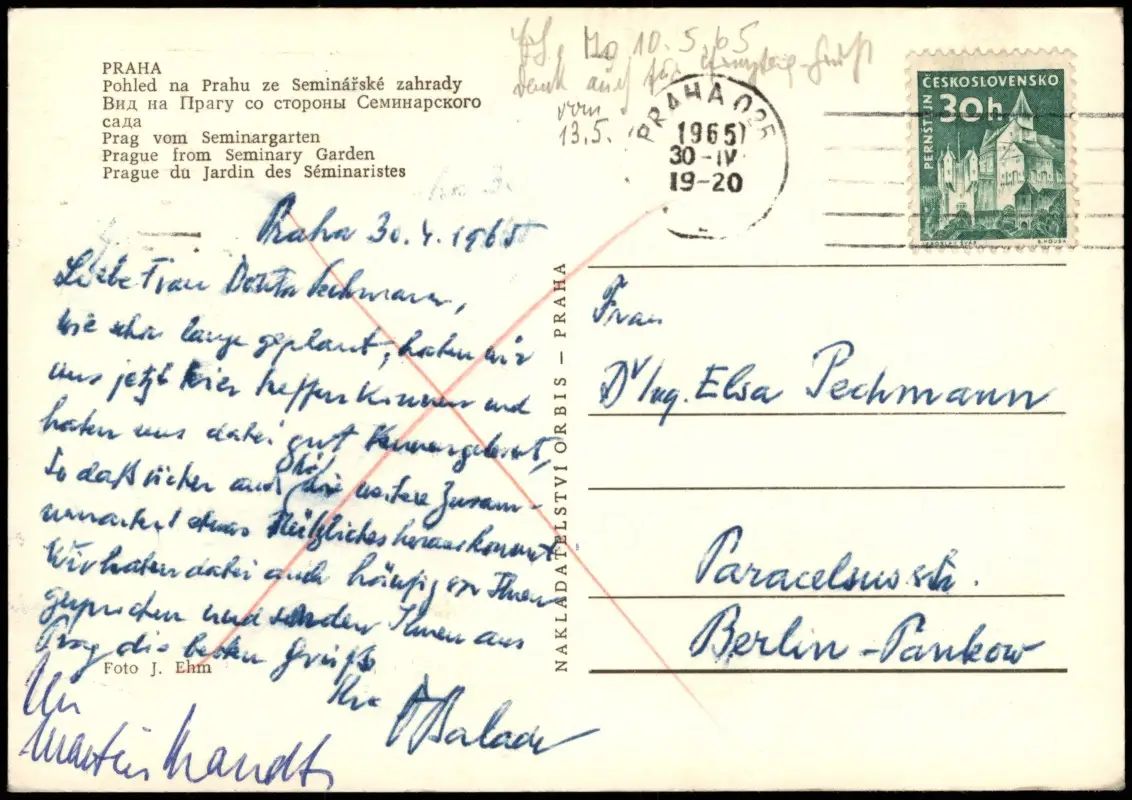 PRAHA
Pohled na Prahu ze Seminářské zahrady
Вид на Прагу со стороны Семинарского
сада
Prag vom Seminargarten
Prague from Seminary Garden
Prague du Jardin des Séminaristes
10.5.65
Dank auch für
vom
13.5.
PRAHA 025
1965
30-IV
19-20
ČESKOSLOVENSKO
30h
PERNŠTEJN
JAROSLAV ŠVÁB
Praha 30.4.1965
Liebe Frau Pechmann,
wie schon lange geplant, haben wir
uns jetzt hier treffen können und
haben uns dabei gut kennengelernt,
so daß sicher auch für die weitere Zusam-
menarbeit etwas Nützliches herauskommt
Wir haben dabei auch häufig von Ihnen
gesprochen und senden Ihnen aus
Prag die besten Grüße
Ihr
Foto J. Ehm
NAKLADATELSTVÍ ORBIS – PRAHA
Frau
Dr/Ing. Elsa Pechmann
Paracelsusstr.
Berlin-Pankow